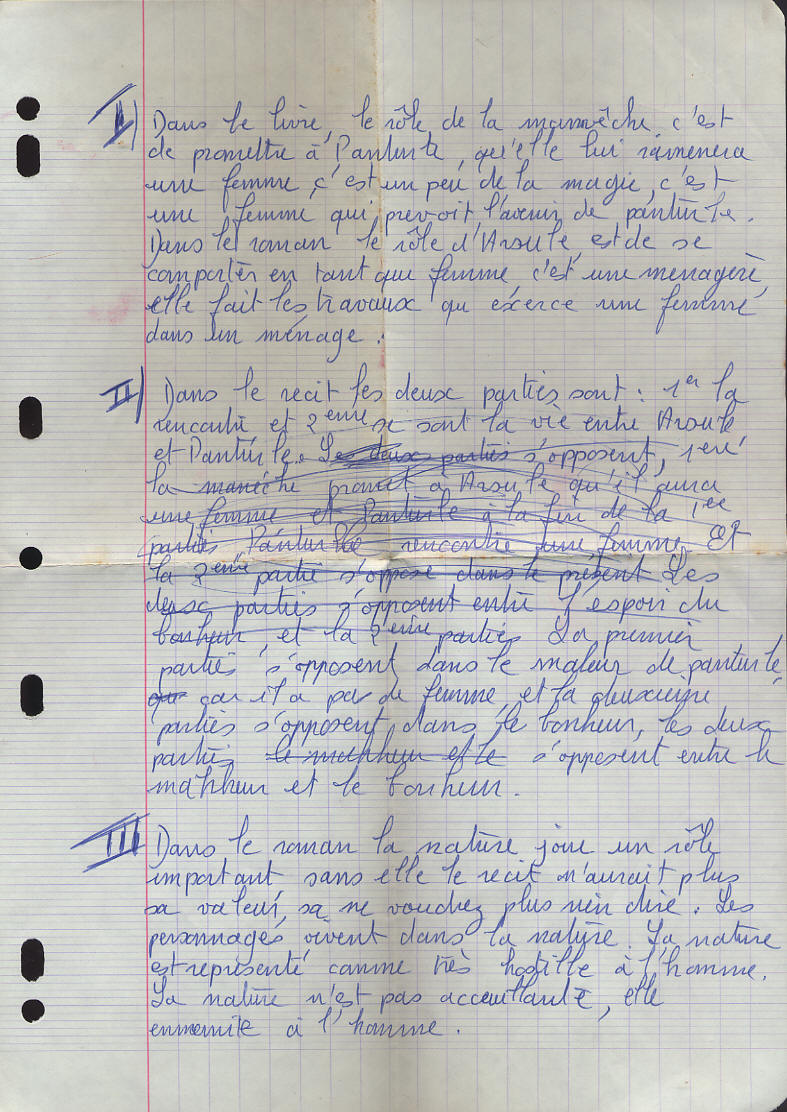 I) Dans le livre, le rôle de la mamèche, c'est
de promettre à Panturle, qu'elle lui ramenera
une femme, c'est un peu de la magie, c'est
une femme qui prevoit l'avenir de panturle.
Dans le roman le rôle d'Aroule, est de se
comporter en tant que femme, c'est une menagère,
elle fait les travaux qu éxerce une femme
dans un ménage.
II) Dans le recit les deux parties sont : 1er la
rencontre et 2eme se sont la vie entre Aroule
et Panturle. Les deux parties s'opposent, 1ere
la manèche promet à Aroule qu'il aura
une femme et Panturle à la fin de la 1ee
parties Panturle rencontre une femme. Et
la 2eme partie s'oppose dans le présent Les
deux parties s'opposent entre l'espoir du
bonheur, et la 2eme parties La premier
parties s'opposent dans le maleur de panturle,
car il a pas de femme, et la deuxieme
parties s'opposent dans le bonheur, les deux
parties le malheur et le s'opposent entre le
malheur et le bonheur.
III) Dans le roman la nature joue un rôle
important sans elle le recit n'aurait plus
sa valeur, sa ne voudrez plus rien dire. Les
personnages vivent dans la nature. La nature
est représenté comme très hostille à l'homme.
La nature n'est pas acceuillante, elle
ennemie à l'homme.